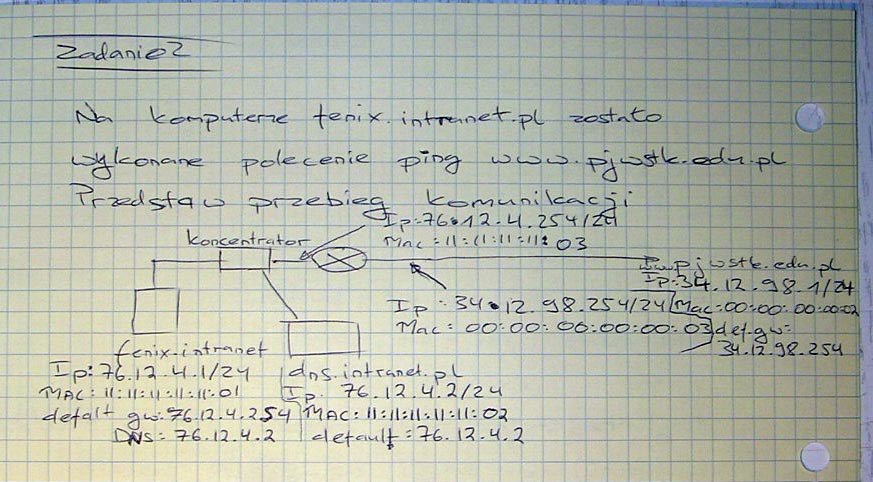 Zadanie 2
Na komputerze fenix.intranet.pl zostało
wykonane polecenie ping www.pjwstk.edu.pl
Przedstaw przebieg komunikacji
Ip:76.12.4.254/24
Mac=11:11:11:11:03
koncentrator
www.pjwstk.edu.pl
Ip:34.12.98.1/24
Mac:00:00:00:00:02
def.gw:
34.12.98.254
Ip: 34.12.98.254/24
Mac: 00:00:00:00:00:03
fenix.intranet
Ip: 76.12.4.1/24
MAC: 11:11:11:11:11:01
defalt gw: 76.12.4.254
DNS: 76.12.4.2
dns.intranet.pl
Ip. 76.12.4.2/24
MAC: 11:11:11:11:11:02
default: 76.12.4.2